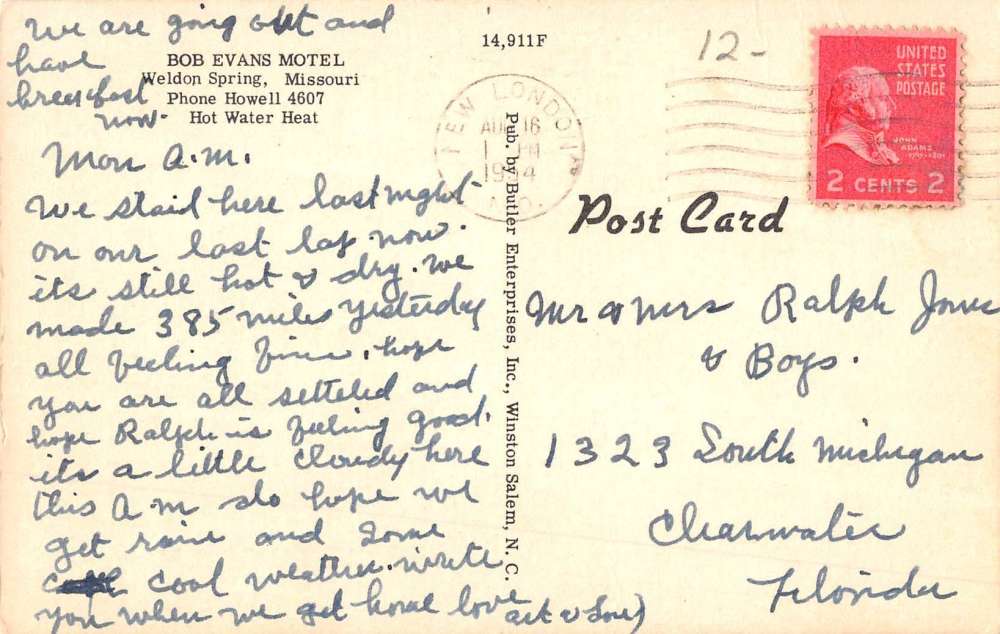 we are going out and
have
breakfast
now-
BOB EVANS MOTEL
Weldon Spring, Missouri
Phone Howell 4607
Hot Water Heat
14,911F
12-
NEW LONDON
AUG 16
PM
1954
MO.
UNITED
STATES
POSTAGE
JOHN
ADAMS
2 CENTS 2
Post Card
Pub. by Butler Enterprises, Inc., Winston Salem, N. C.
Mon A.M.
We staid here last night
on our last lap now.
its still hot & dry. we
made 385 miles yesterday
all feeling fine. hope
you are all setteled and
hope Ralph is feeling good.
its a little cloudy here
this A m do hope we
get rain and some
cool weather. write
you when we get home love
Mr & Mrs Ralph Jones
& Boys.
1323 South Michigan
Clearwater
Florida